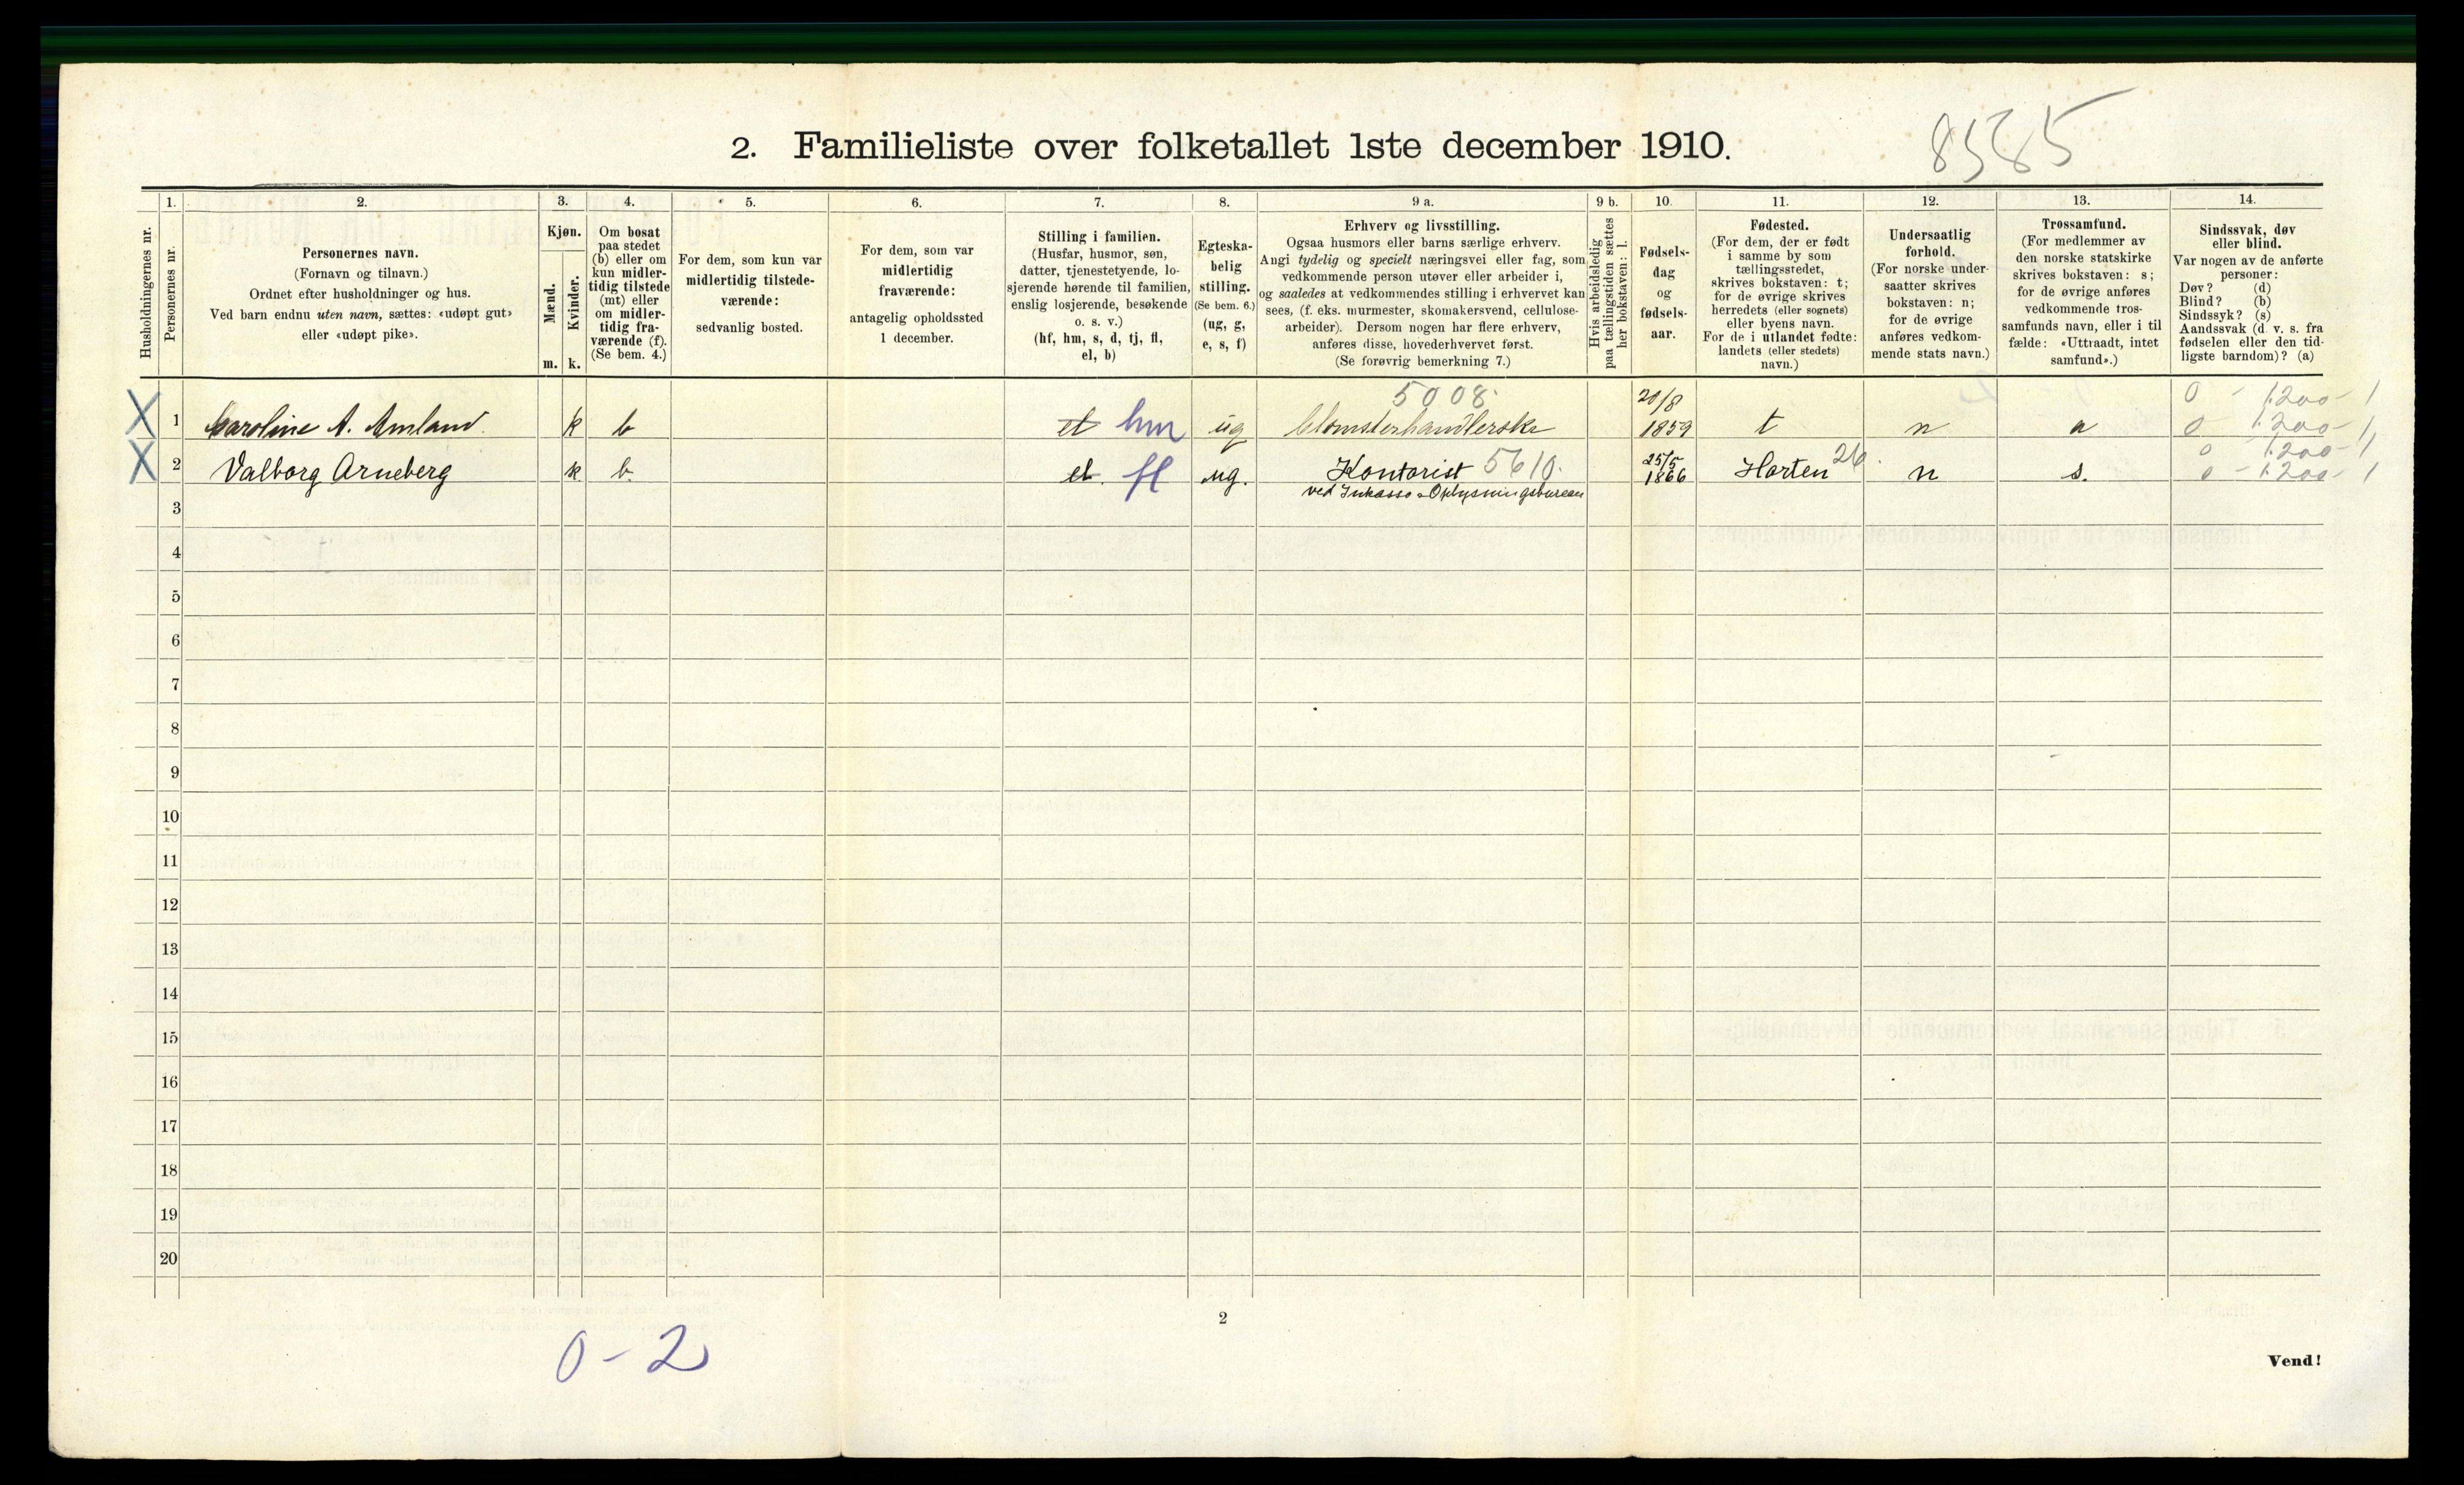 8585
2. Familieliste over folketallet 1ste december 1910.
Husholdningernes nr.
1.
Personernes nr.
2.
Personernes navn.
(Fornavn og tilnavn.)
Ordnet efter husholdninger og hus.
Ved barn endnu uten navn, sættes: «udøpt gut»
eller «udøpt pike».
3.
Kjøn.
Mænd.
m.
Kvinder.
k.
4.
Om bosat
paa stedet
(b) eller om
kun midler-
tidig tilstede
(mt) eller
om midler-
tidig fra-
værende (f).
(Se bem. 4.)
5.
For dem, som kun var
midlertidig tilstede-
værende:
sedvanlig bosted.
6.
For dem, som var
midlertidig
fraværende:
antagelig opholdssted
1 december.
7.
Stilling i familien.
(Husfar, husmor, søn,
datter, tjenestetyende, lo-
sjerende hørende til familien,
enslig losjerende, besøkende
o. s. v.)
(hf, hm, s, d, tj, fl,
el, b)
8.
Egteska-
belig
stilling.
(Se bem. 6.)
(ug, g,
e, s, f)
9 a.
Erhverv og livsstilling.
Ogsaa husmors eller barns særlige erhverv.
Angi tydelig og specielt næringsvei eller fag, som
vedkommende person utøver eller arbeider i,
og saaledes at vedkommendes stilling i erhvervet kan
sees, (f. eks. murmester, skomakersvend, cellulose-
arbeider). Dersom nogen har flere erhverv,
anføres disse, hovederhvervet først.
(Se forøvrig bemerkning 7.)
9 b.
Hvis arbeidsledig
paa tællingstiden sættes
her bokstaven: l.
10.
Fødsels-
dag
og
fødsels-
aar.
11.
Fødested.
(For dem, der er født
i samme by som
tællingsstedet,
skrives bokstaven: t;
for de øvrige skrives
herredets (eller sognets)
eller byens navn.
For de i utlandet fødte:
landets (eller stedets)
navn.)
12.
Undersaatlig
forhold.
(For norske under-
saatter skrives
bokstaven: n;
for de øvrige
anføres vedkom-
mende stats navn.)
13.
Trossamfund.
(For medlemmer av
den norske statskirke
skrives bokstaven: s;
for de øvrige anføres
vedkommende tros-
samfunds navn, eller i til-
fælde: «Uttraadt, intet
samfund».)
14.
Sindssvak, døv
eller blind.
Var nogen av de anførte
personer:
Døv? (d)
Blind? (b)
Sindssyk? (s)
Aandssvak (d. v. s. fra
fødselen eller den tid-
ligste barndom)? (a)
5008. 20/8 0 - 1200 - 1
X 1 Caroline A. Amland. k b el hm ug Blomsterhandlerske 1859 t n 0 1200 - 1
0 - 1200 - 1
X 2 Valborg Arneberg k b. el. fl ug. Kontorist 5610. 25/5 1866 Horten 26. n s. 0 - 1200 - 1
ved Inkasso & Oplysningsbureau
3
4
5
6
7
8
9
10
11
12
13
14
15
16
17
18
19
20
2
0 - 2
Vend!